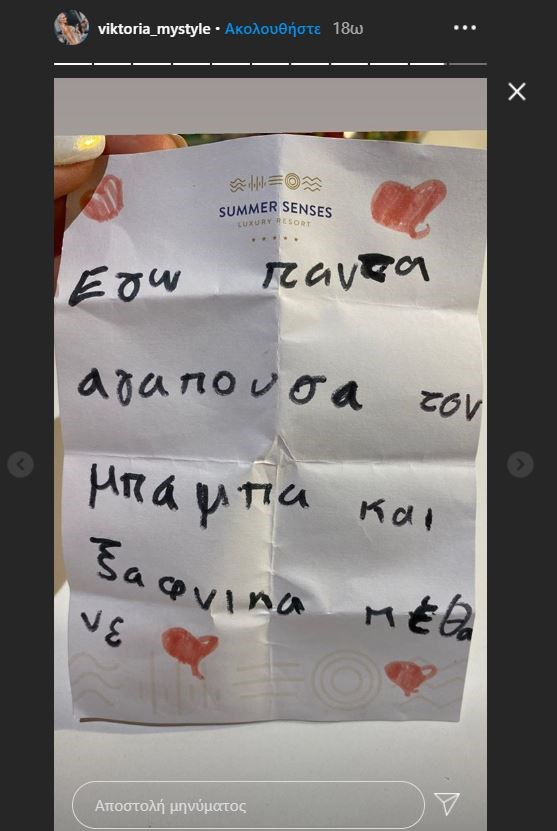 viktoria_mystyle • Ακολουθήστε 18ω
SUMMER SENSES
LUXURY RESORT
Εγω παντα
αγαπουσα τον
μπαμπα και
ξαφνικα πεθα
νε
Αποστολή μηνύματος